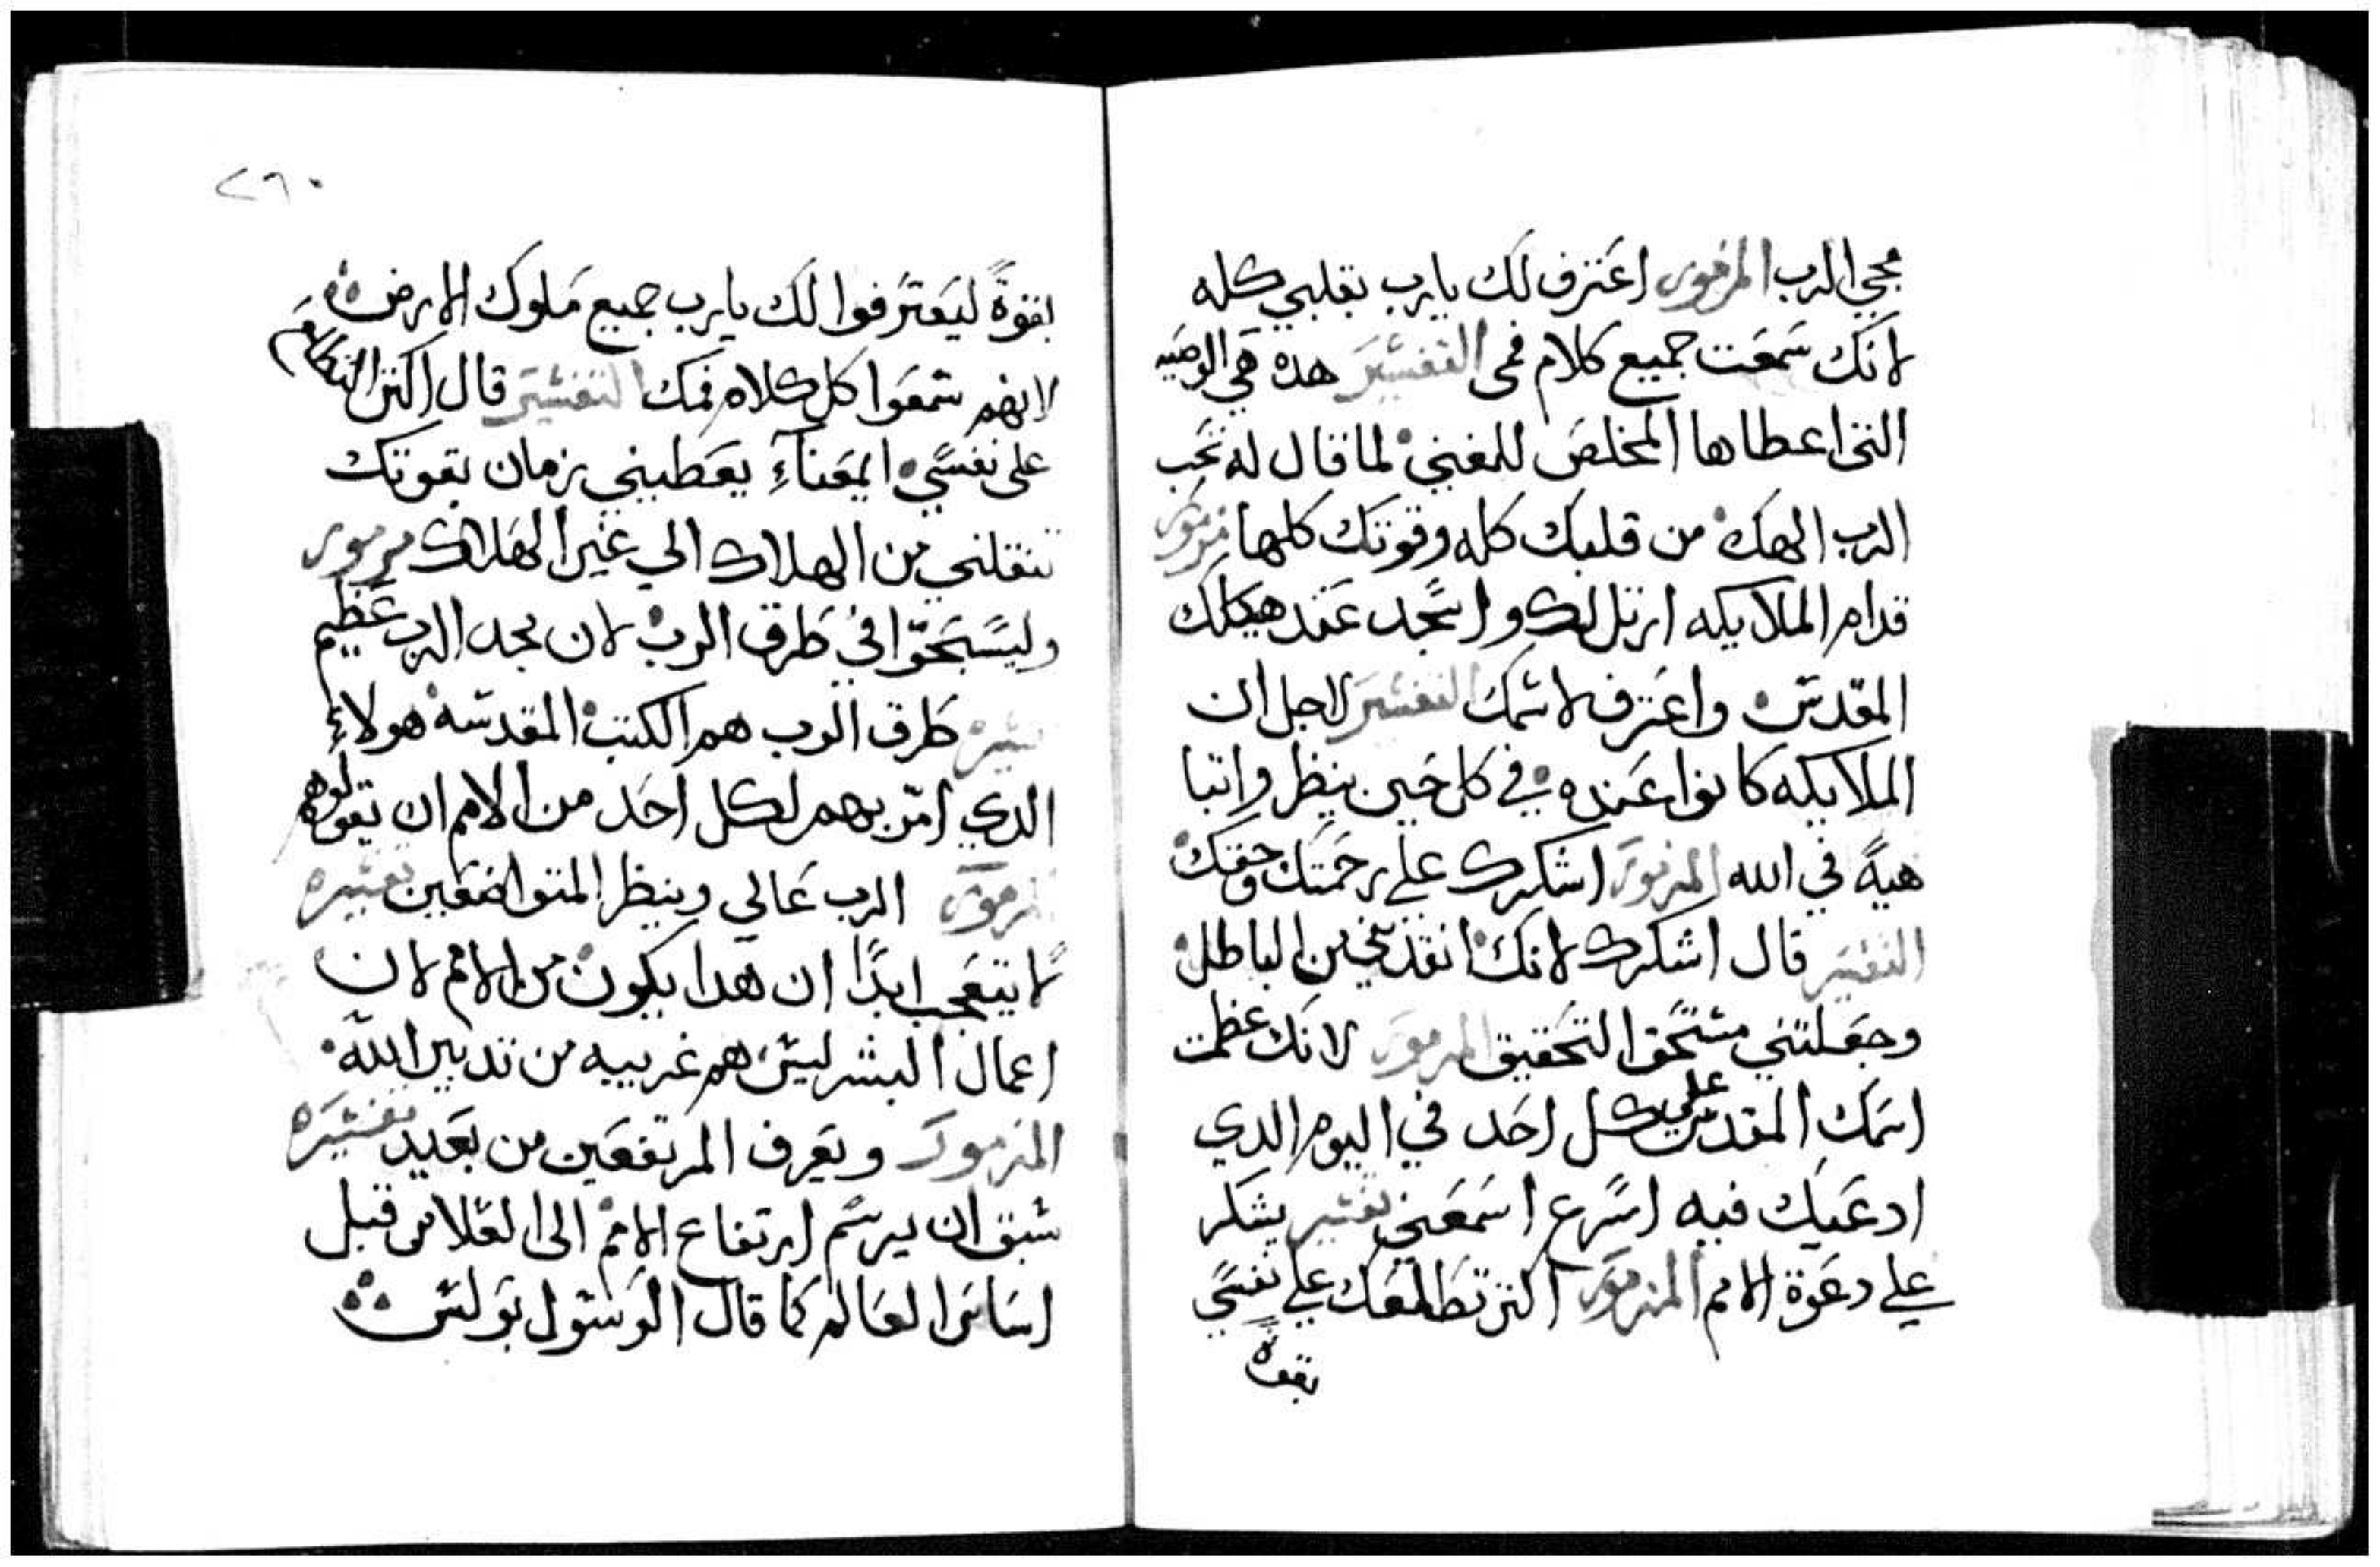 مجي الرب المزمور اعترف لك يارب بقلبي كله
لانك سمعت جميع كلام فمي التفسير هده هي الوصيه
التى اعطاها المخلص للمغني لما قال له تحب
الرب الهك من قلبك كله وقوتك كلها مزمور
قدام الملايكه ارتل لك واسجد عند هيكلك
المقدس واعترف لاسمك التفسير لاجل ان
الملايكه كانوا عنده في كل حين ينظروا تبا
هية في الله المزمور اشكرك على رحمتك وحقك
التفسير قال اشكرك لانك انقذتني من الباطل
وجعلتني مستحق التحقيق المزمور لانك عظمت
اسمك المقدس على كل احد في اليوم الدي
ادعيك فيه اسرع اسمعني تفسير يشكر
على دعوة الامم المزمور اكتر تطلعك على نفسي
بقوة
٢٦٠
بقوة ليعترفوا لك يارب جميع ملوك الارض
لانهم سمعوا كل كلام فمك التفسير قال اكتر
على نفسي يعطيني زمان بقوتك
تنقلني من الهلاك الي غير الهلاك مزمور
وليسبحوا في طرق الرب لان مجد الرب عظيم
تفسير طرق الرب هم الكتب المقدسه هولاء
الدي امر بهم لكل احد من الامم ان يقولوهم
المزمور الرب عالي وينظر المتواضعين تفسيره
لا يتعجب ابدًا ان هدا يكون من الامم لان
اعمال البشر ليس هم غريبه من تدبير الله
المزمور ويعرف المرتفعين من بعيد تفسيره
سبق ان يرسم ارتفاع الامم الى العلا من قبل
اساس العالم كما قال الرسول بولس